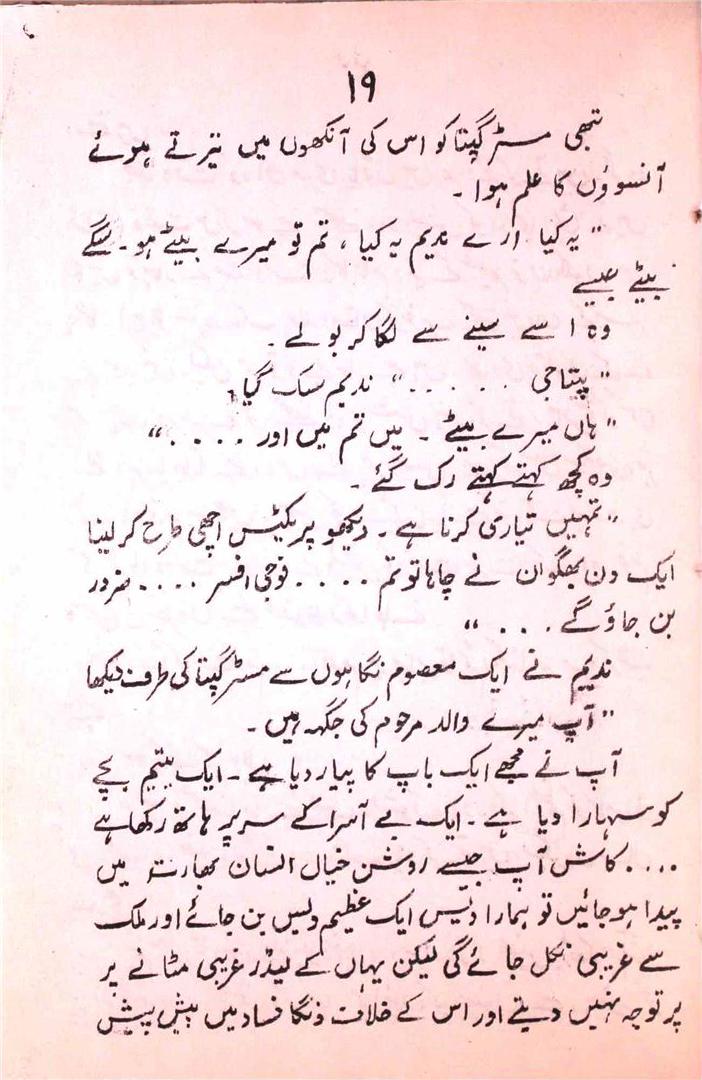 ۱۹
تبھی مسٹر گپتا کو اس کی آنکھوں میں تیرتے ہوئے
آنسوؤں کا علم ہوا ۔
" یہ کیا ارے ندیم یہ کیا ، تم تو میرے بیٹے ہو۔ سگے
بیٹے جیسے
وہ اسے سینے سے لگا کر بولے ۔
" پیتاجی . . . . . " ندیم سسک گیا۔
" ہاں میرے بیٹے ۔ میں تم میں اور . . . . "
وہ کچھ کہتے کہتے رک گئے ۔
" تمہیں تیاری کرنا ہے ۔ دیکھو پریکٹس اچھی طرح کر لینا
ایک دن بھگوان نے چاہا تو تم . . . . فوجی افسر . . . . ضرور
بن جاؤ گے . . . "
ندیم نے ایک معصوم نگاہوں سے مسٹر گپتا کی طرف دیکھا
" آپ میرے والد مرحوم کی جگہہ ہیں ۔
آپ نے مجھے ایک باپ کا پیار دیا ہے ۔ ایک یتیم بچے
کو سہارا دیا ہے ۔ ایک بے آسرا کے سر پر ہاتھ رکھا ہے
.... کاش آپ جیسے روشن خیال انسان بھارت میں
پیدا ہو جائیں تو ہمارا دیس ایک عظیم دیس بن جائے اور ملک
سے غریبی نکل جائے گی لیکن یہاں کے لیڈر غریبی مٹانے پر
پر توجہ نہیں دیتے اور اس کے خلاف دنگا فساد میں پیش پیش